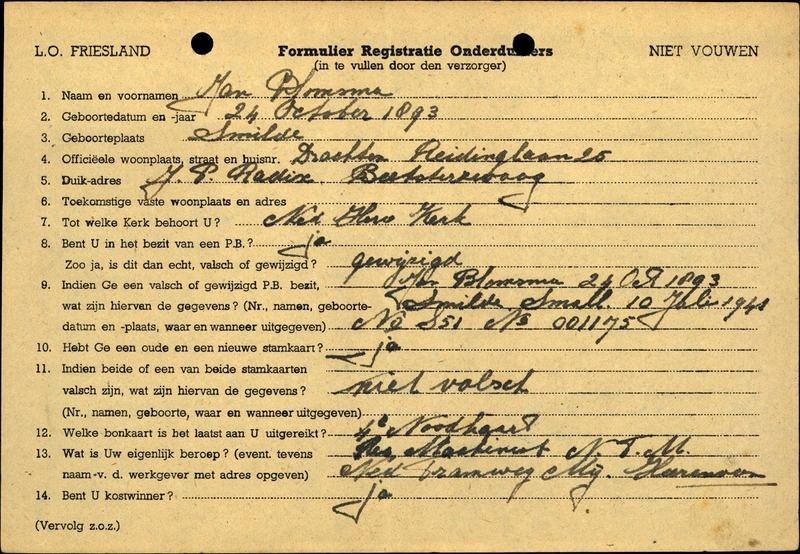 L.O. FRIESLAND Formulier Registratie Onderduikers NIET VOUWEN
(in te vullen door den verzorger)
1. Naam en voornamen Jan Blomsma
2. Geboortedatum en -jaar 24 October 1893
3. Geboorteplaats Smilde
4. Officiëele woonplaats, straat en huisnr. Drachten Reidinglaan 25
5. Duik-adres J. P. Radix Beetsterzwaag
6. Toekomstige vaste woonplaats en adres
7. Tot welke Kerk behoort U? Ned Herv Kerk
8. Bent U in het bezit van een P.B.? ja
Zoo ja, is dit dan echt, valsch of gewijzigd? gewijzigd
9. Indien Ge een valsch of gewijzigd P.B. bezit, Jan Blomsma 24 Oct 1893
wat zijn hiervan de gegevens? (Nr., namen, geboorte- Smilde Small. 10 Juli 1941
datum en -plaats, waar en wanneer uitgegeven) No S51 No 001175
10. Hebt Ge een oude en een nieuwe stamkaart? ja
11. Indien beide of een van beide stamkaarten
valsch zijn, wat zijn hiervan de gegevens? niet valsch
(Nr., namen, geboorte, waar en wanneer uitgegeven)
12. Welke bonkaart is het laatst aan U uitgereikt? 4e Noodkaart
13. Wat is Uw eigenlijk beroep? (event. tevens Machinist N. T. M.
naam v. d. werkgever met adres opgeven) Ned Tramweg Mij. Heerenveen
14. Bent U kostwinner? ja
(Vervolg z.o.z.)